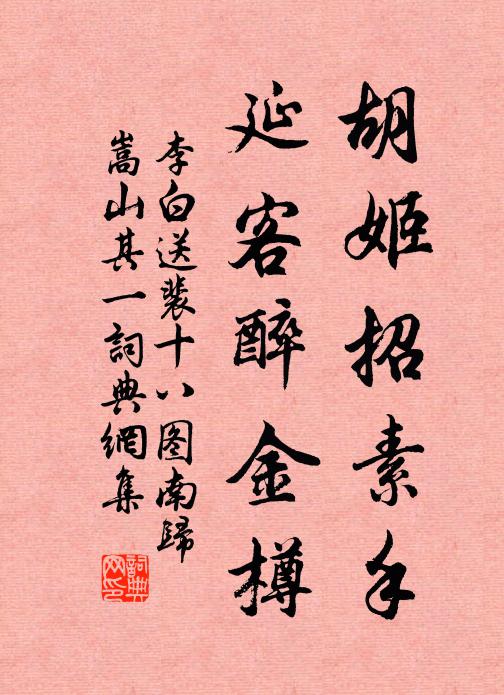 胡姬招素手
延客醉金樽
李白送裴十八图南歸
嵩山其一詞典網集
詞典网印